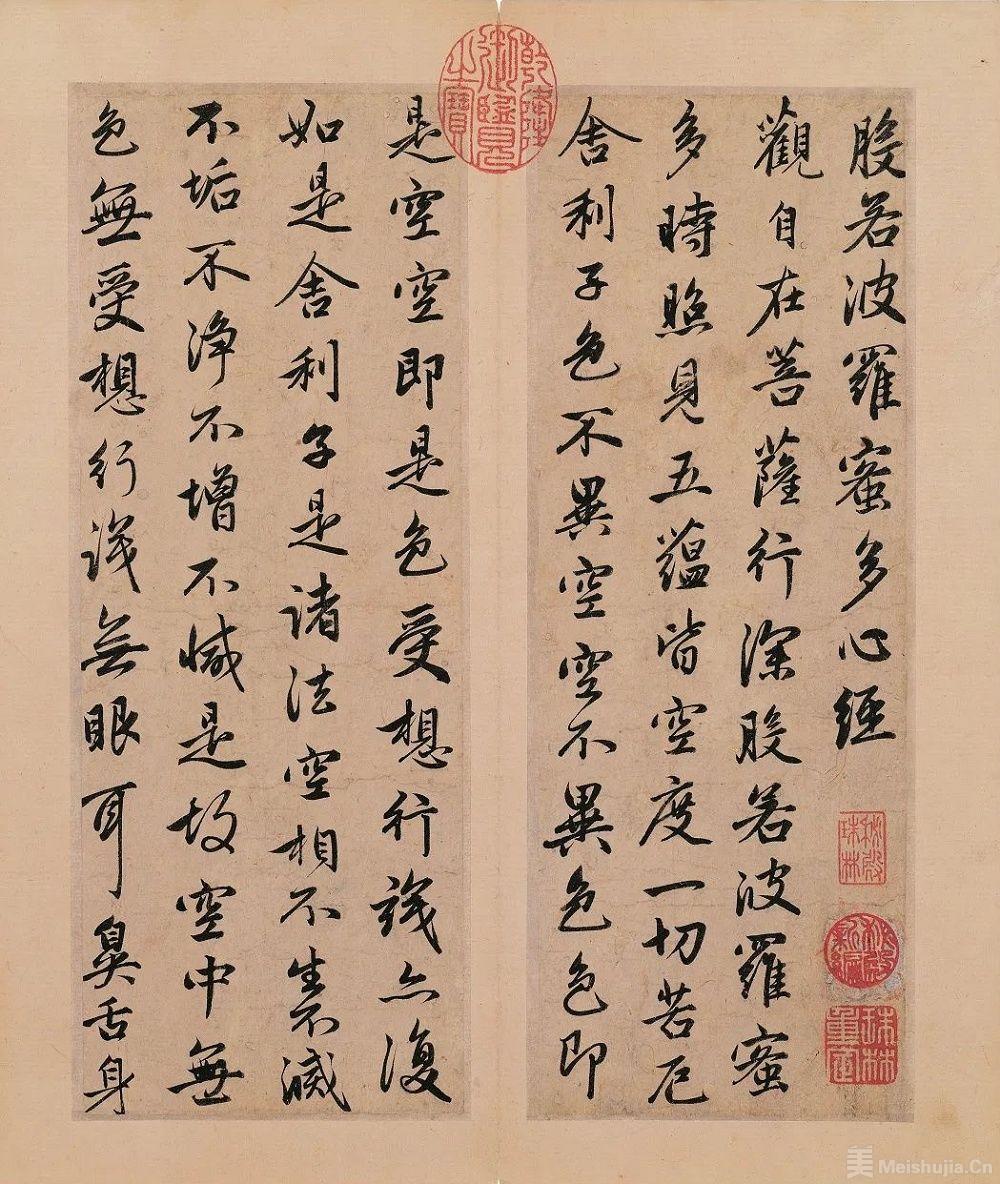 般若波羅蜜多心經
秘殿珠林
秘殿新編
珠林重定
觀自在菩薩行深般若波羅蜜
多時照見五蘊皆空度一切苦厄
舍利子色不異空空不異色色即
乾隆御覽之寶
是空空即是色受想行識亦復
如是舍利子是諸法空相不生不滅
不垢不淨不增不減是故空中無
色無受想行識無眼耳鼻舌身
美 Meishujia.Cn